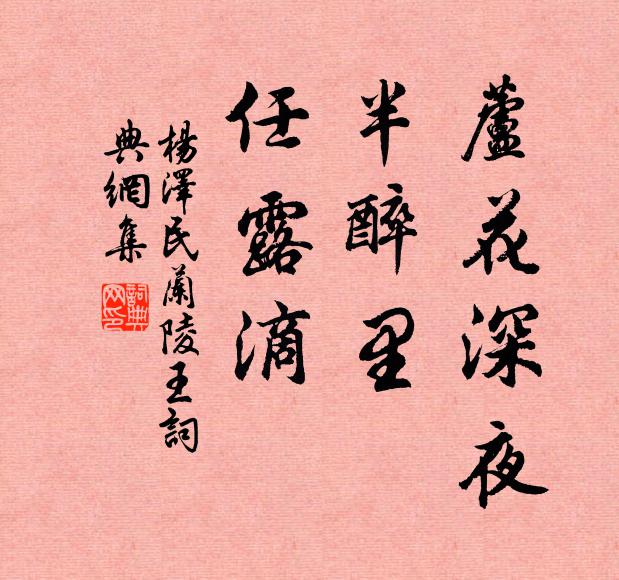 蘆花深夜
半醉里
任露滴
楊澤民蘭陵王詞
典網集
詞典網印